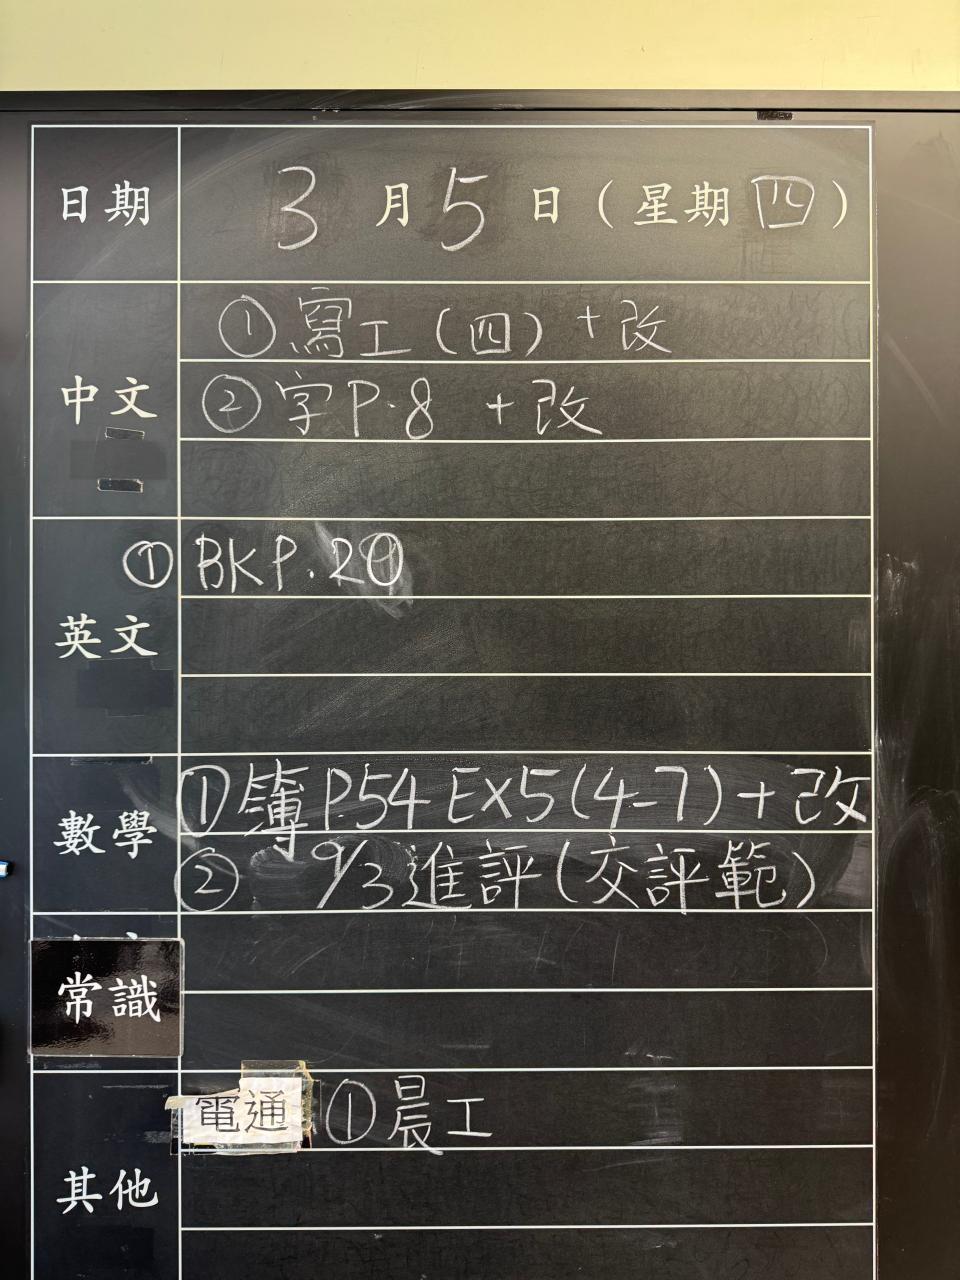 日期 3月5日（星期四）
中文
①寫工（四）+改
②字P.8 +改
英文
① BK P.20
數學
①簿P.54 EX5(4-7)+改
② 9/3進評(交評範)
常識
其他
電通 ①晨工